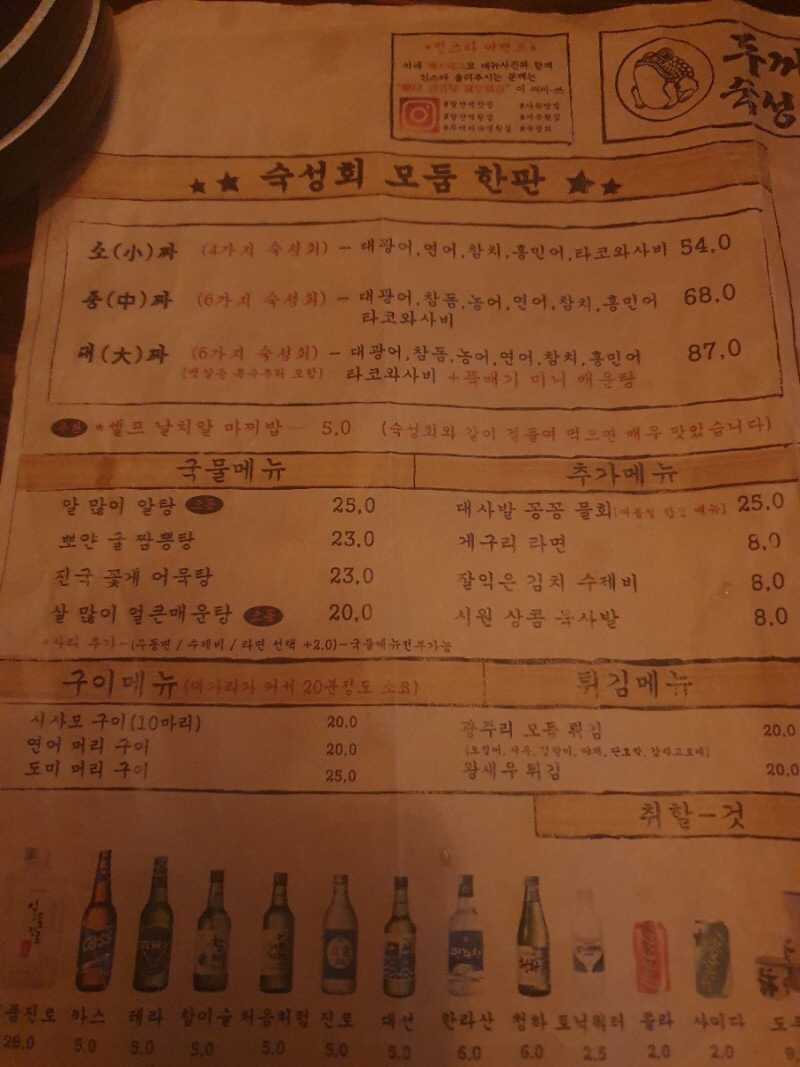 ★인스타 이벤트★
아래 해시태그로 메뉴사진과 함께
인스타 올려주시는 분께는
이 써비-쓰
두꺼
숙성
★★ 숙성회 모둠 한판 ★★
소(小)짜 (4가지 숙성회) - 대광어,연어,참치,홍민어,타코와사비 54.0
중(中)짜 (6가지 숙성회) - 대광어,참돔,농어,연어,참치,홍민어 68.0
타코와사비
대(大)짜 (6가지 숙성회) - 대광어,참돔,농어,연어,참치,홍민어 87.0
타코와사비 +뚝배기 미니 매운탕
추천 *셀프 날치알 마끼밥 - 5.0 (숙성회와 같이 곁들여 먹으면 매우 맛있습니다)
국물메뉴
알 많이 알탕 25.0
뽀얀 굴 짬뽕탕 23.0
진국 꽃게 어묵탕 23.0
살 많이 얼큰매운탕 20.0
*사리 추가-(우동면 / 수제비 / 라면 선택 +2.0)-국물메뉴전부가능
추가메뉴
대사발 꽁꽁 물회(여름철 한정 메뉴) 25.0
게구리 라면 8.0
잘익은 김치 수제비 8.0
시원 상콤 묵사발 8.0
구이메뉴(대가리가 커서 20분정도 소요)
시사모 구이(10마리) 20.0
연어 머리 구이 20.0
도미 머리 구이 25.0
튀김메뉴
광주리 모둠 튀김 20.0
왕새우 튀김 20.0
취할-것
품진로 카스 테라 참이슬 처음처럼 진로 대선 한라산 청하 토닉워터 콜라 사이다
28.0 5.0 5.0 5.0 5.0 5.0 5.0 6.0 6.0 2.5 2.0 2.0